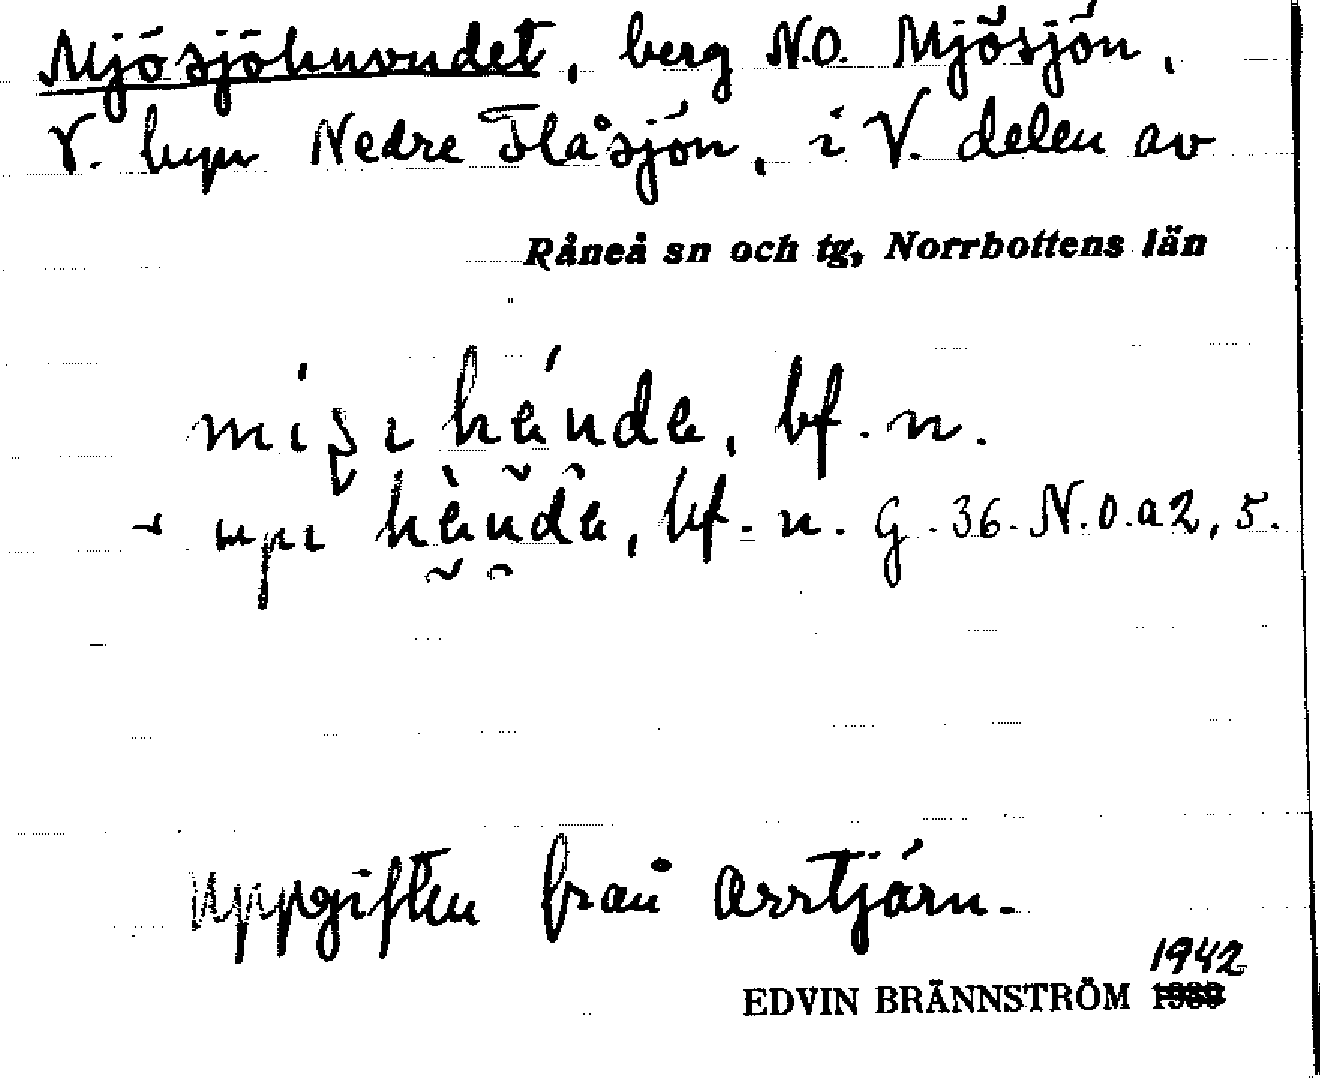 Mjösjöhuvudet, berg N.O. Mjösjön,
V. byn Nedre Flåsjön, i V. delen av
Råneå sn och tg, Norrbottens län
bf. n.
bf. n. G. 36. N.O. a 2, 5.
Uppgiften från Orrtjärn.
1942
EDVIN BRÄNNSTRÖM